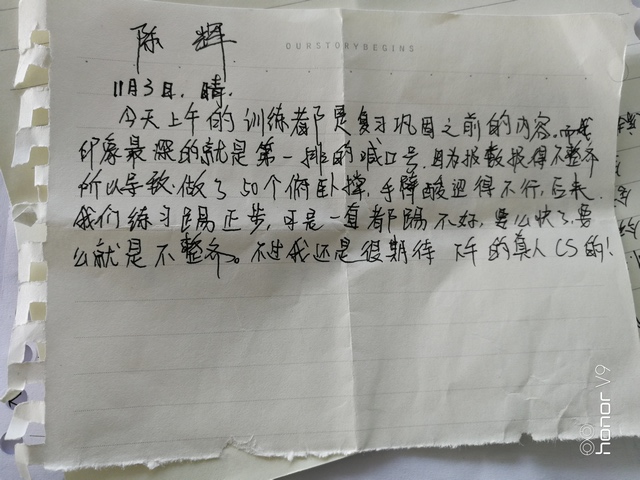 陈辉
OURSTORYBEGINS
11月3日.晴.
今天上午的训练都是复习巩固之前的内容.而我
印象最深的就是第一排的喊口号.因为报数报得不整齐
所以导致.做了50个俯卧撑,手障酸逗得不行,后来.
我们练习踢正步,可是一直都踢不好,要么快了.要
么就是不整齐。不过我还是很期待 下午的真人CS的!
honor V9